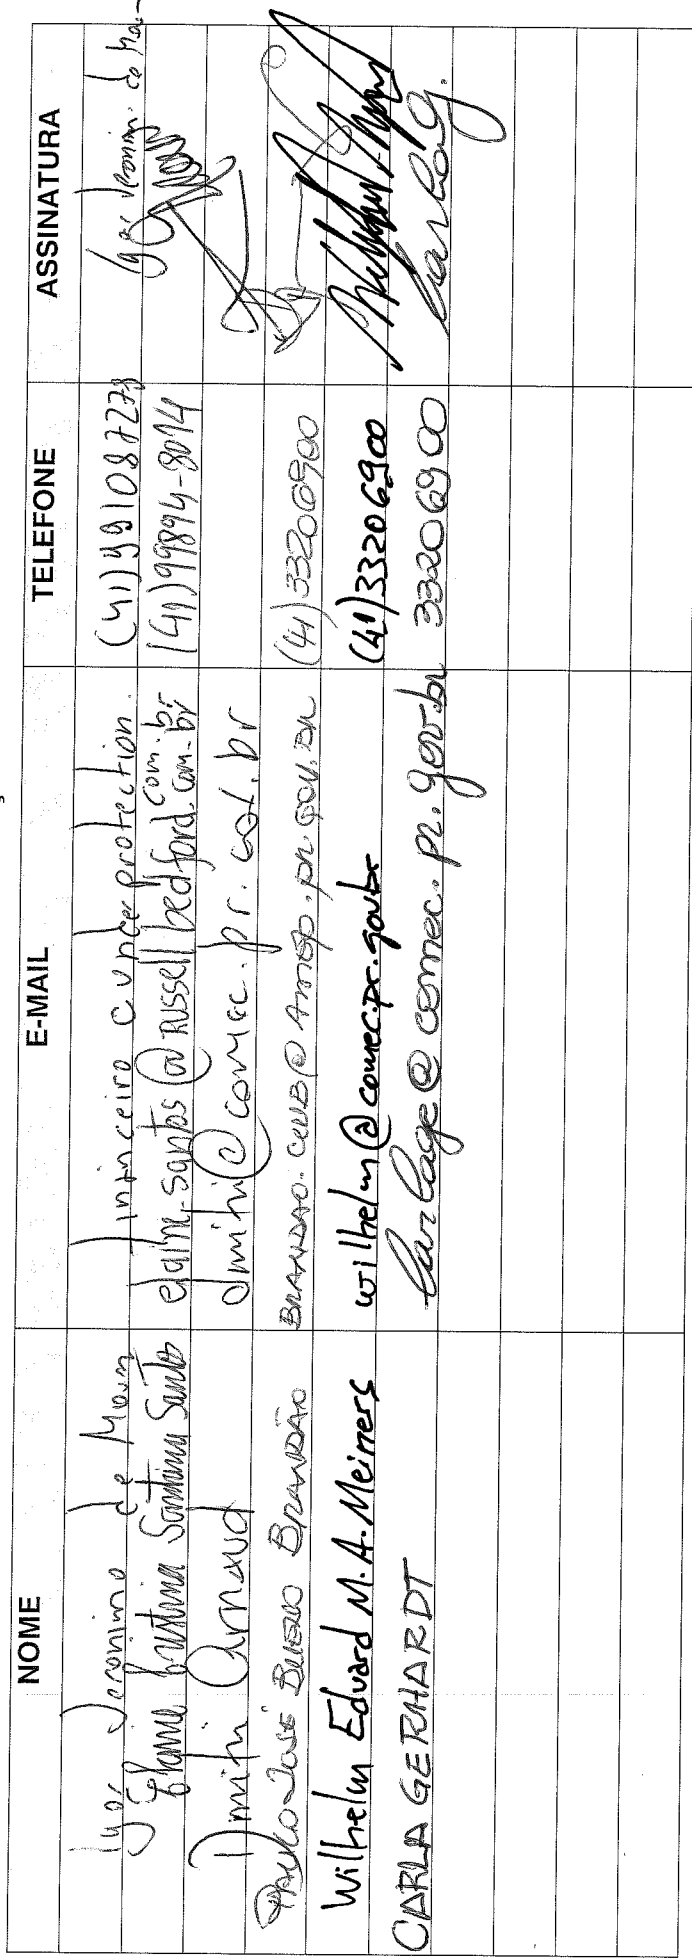 NOME E-MAIL TELEFONE ASSINATURA
Jeronimo de financeiro protection (41)991087278
Elaine Cristina Santana Santos elaine.santos@russellbedford.com.br com.br (41)99894-8014
Dimitri Arnaud dmitri@comec.pr.gov.br
PAULO JOSÉ BUENO BRANDÃO (41)33206900
Wilhelm Eduard M.A. Meiners wilhelm@comec.pr.gov.br (41)33206900
CARLA GERHARDT carlage@comec.pr.gov.br 33206900 Carla G.